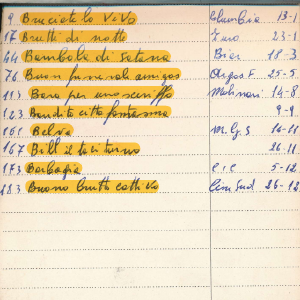 9 Bruciatelo Vivo Columbia 13-1
17 Brutti di notte Fono 23-1
44 Bambole di Satana Bier 18-3
76 Buon funerale amigos 25-5
113 Bara per uno sceriffo 14-8
123 Bandito città fantasma 9-9
161 Belva M.G.S 14-11
167 Bill il taciturno 26-11
173 Barbagia C I C 5-12
183 Buono brutto cattivo 26-12